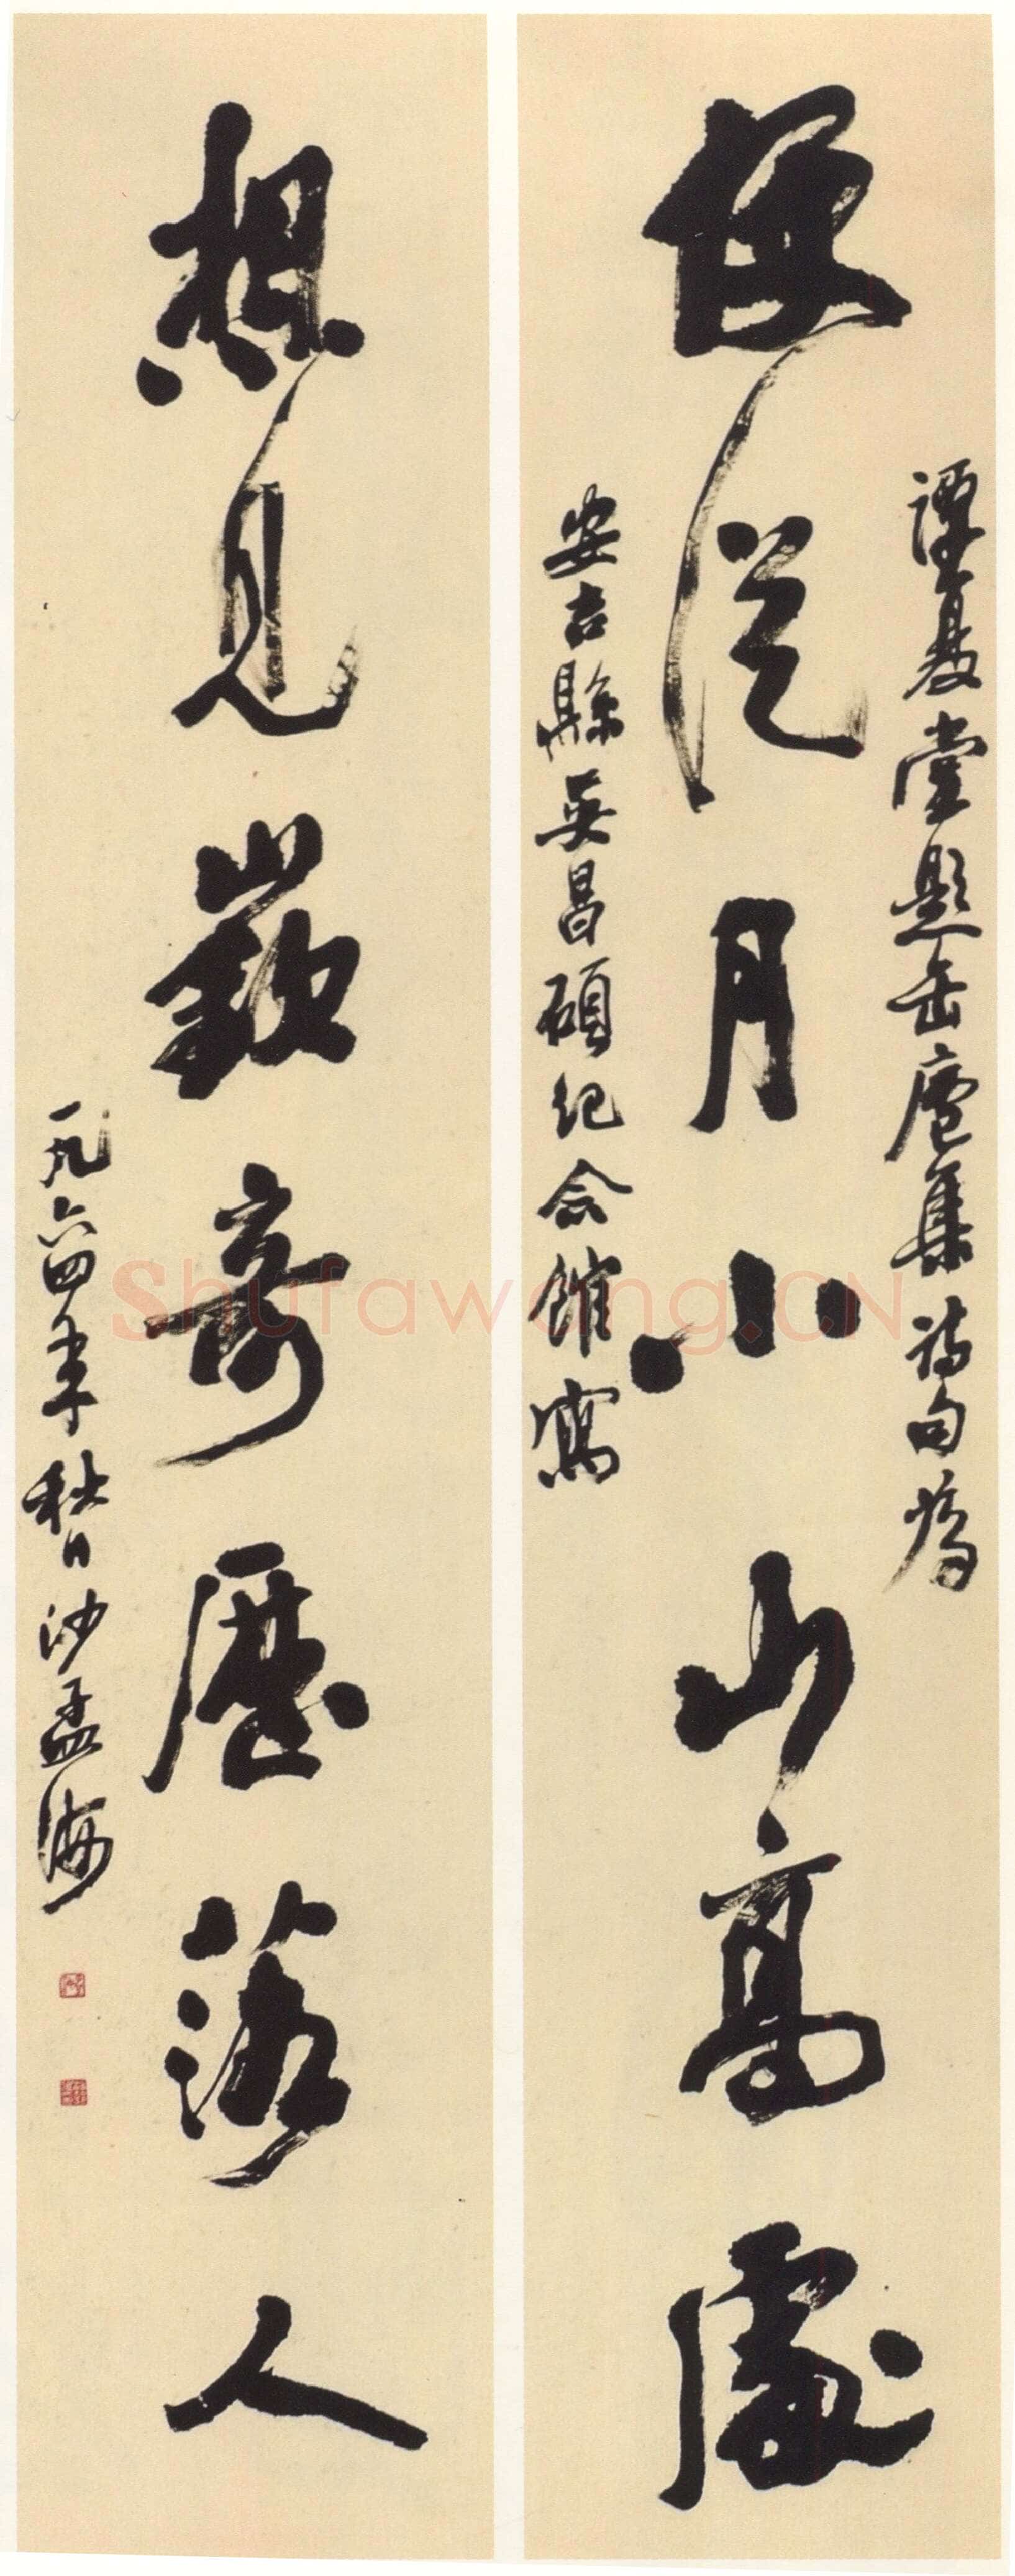 譚復堂題缶廬集詩句為
便從月小山高處
安吉縣吳昌碩紀念館寫
想見嶔奇歷落人
一九六四年秋日沙孟海
Shufawang.CN